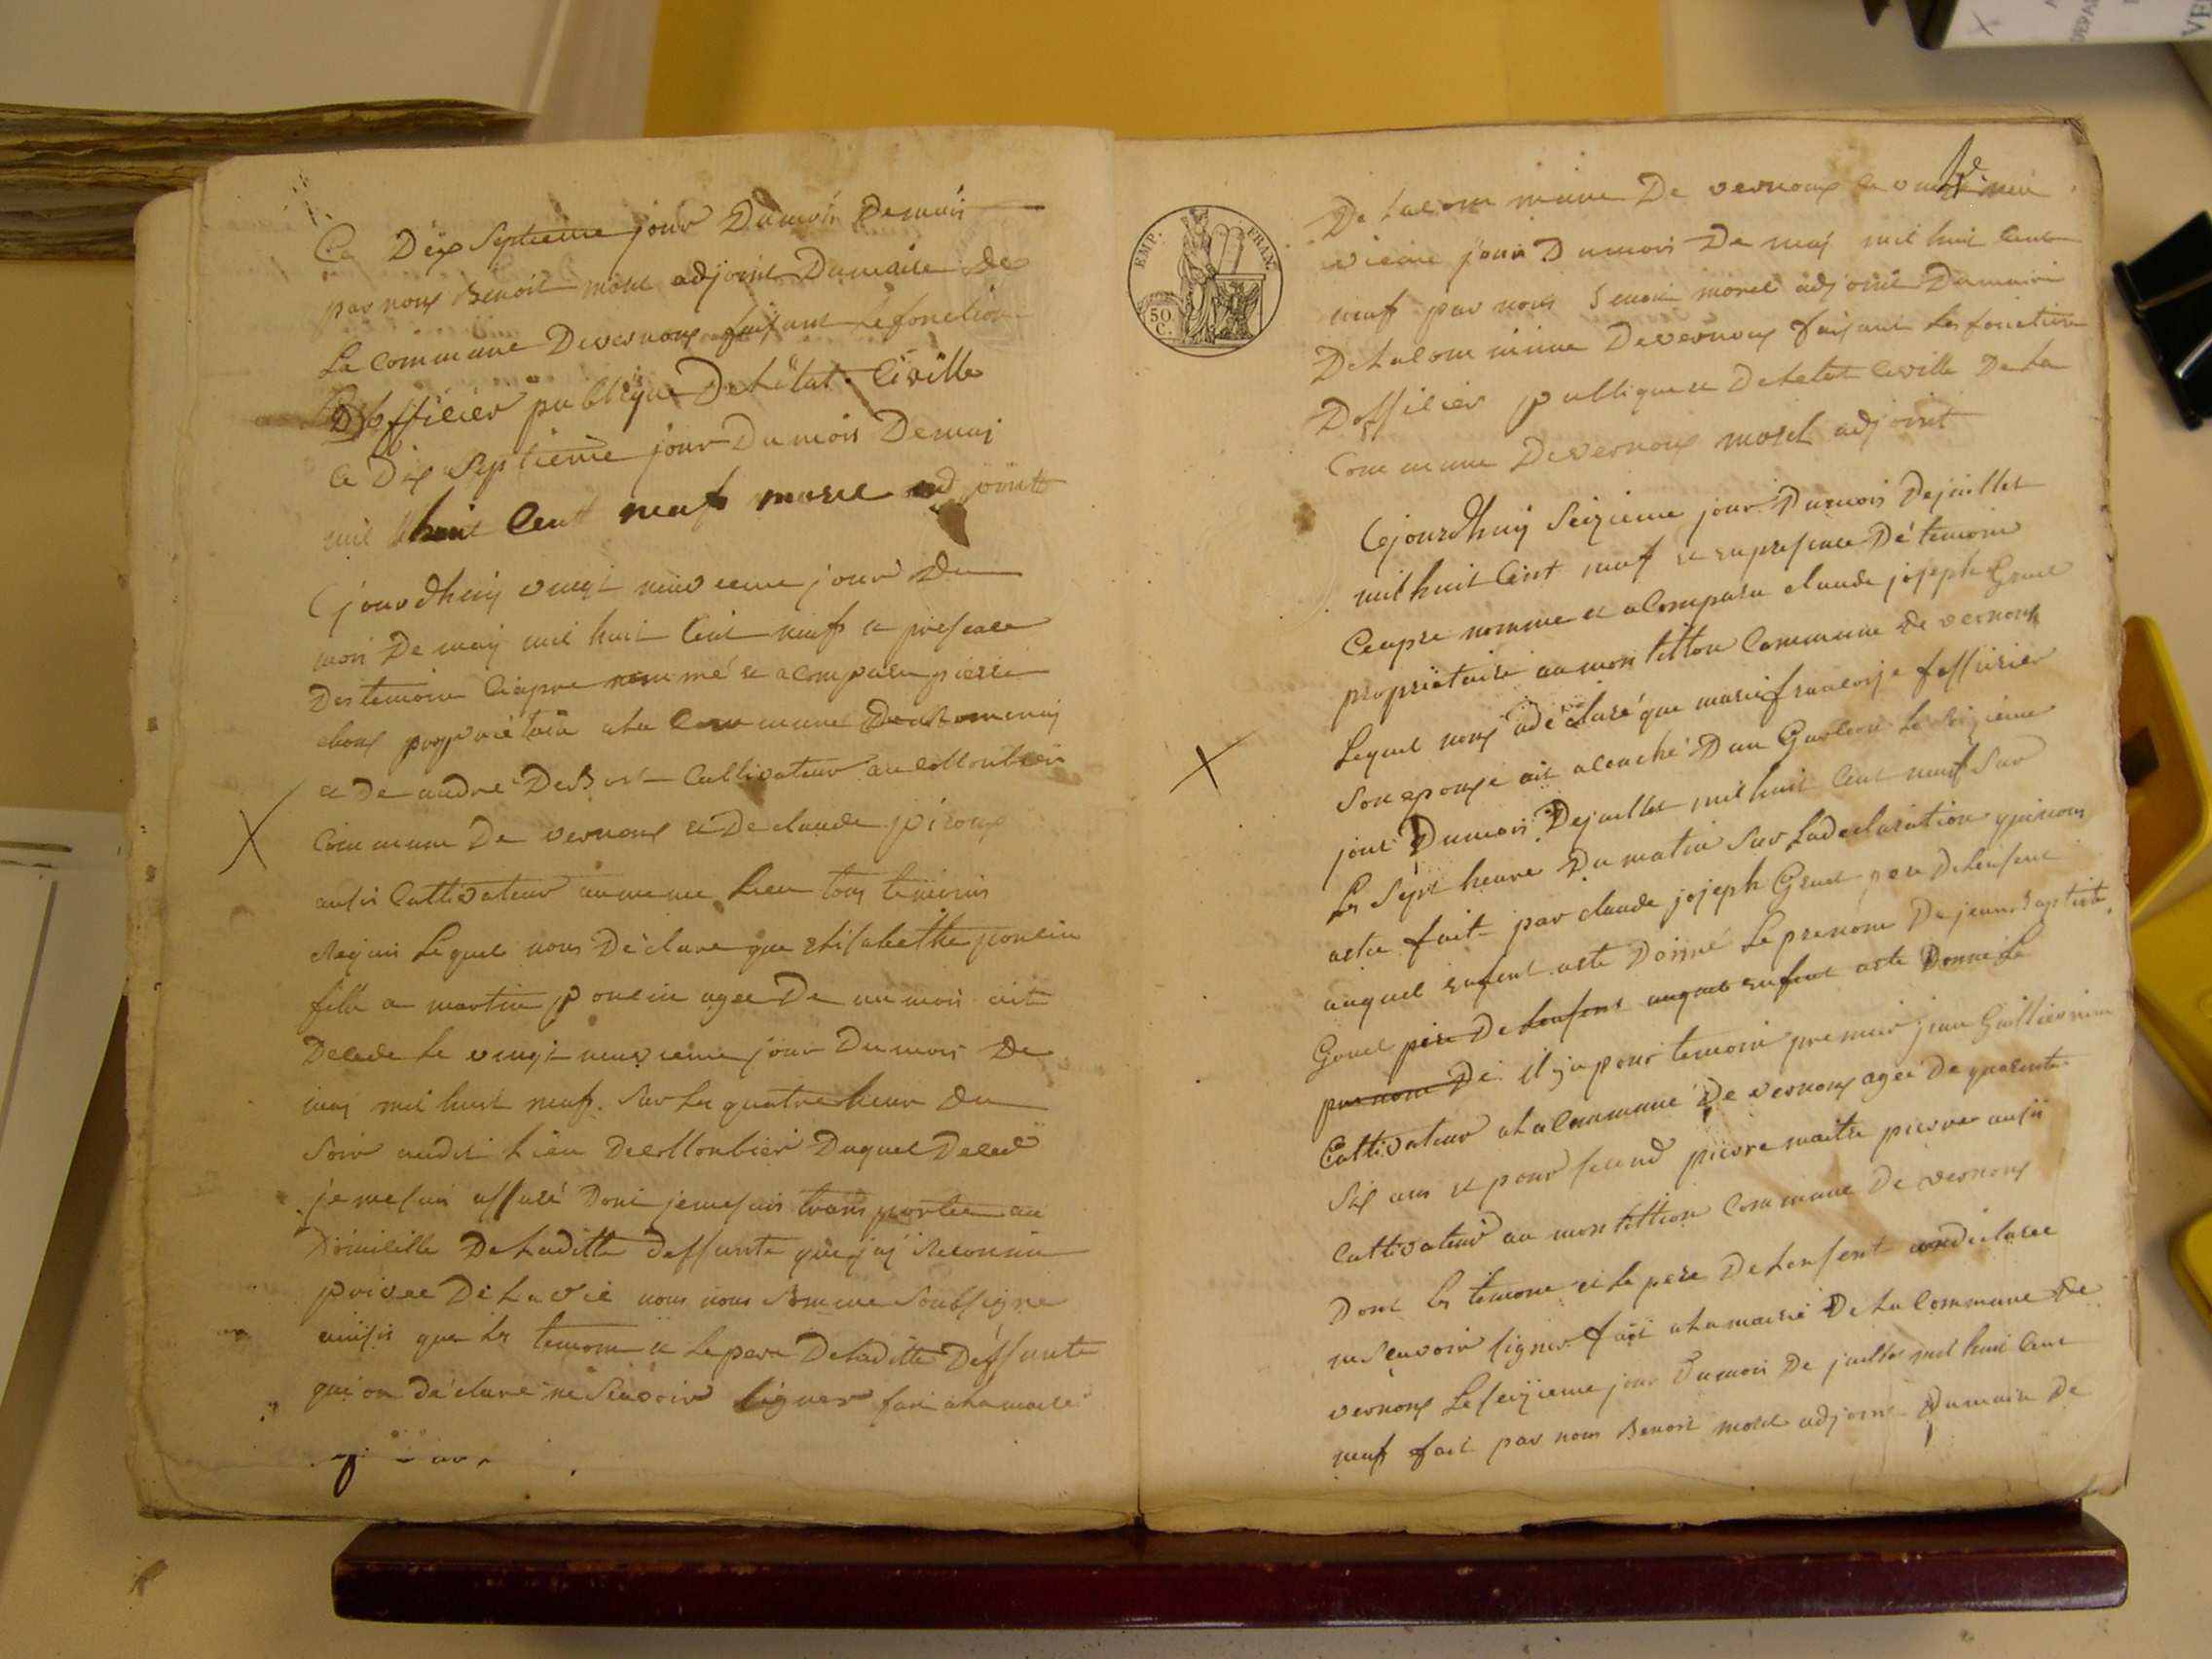 Ce Dixseptieme jour Dumois Demais
par nous Benoit morel adjoint Dumaire de
La commune Devernoux faisant Le fonction
Dofficier publique De Létat Civille
Le Dix Septieme jour Dumois Demai
mil huit Cent neuf morel adjoint
Cejourdhuy vingt neuvieme jour du
mois De may mil huit Cent neuf a presence
Des temoin Ciapre nommé et a comparu pierre
proprietaire a La Commune De Romenay
et De andre Debost Cultivateur au collombier
Commune De vernoux et De claude piroux
ausis Cultivateur aumeme Lieu tous temoins
Requis Lequel nous Déclare que Elisabethe poncin
fille a martin poncin agee De un mois ait
Decede Le vingt neuvieme jour Dumois De
mai mil huit neuf. Sur Les quatre heur du
Soir audit Lieu De collombier Duquel Deced
je mesuis assuré Dont jemesuis transportee au
Domicille De Laditte deffunte que jai Reconnu
privee De La vie nous nous Somme Soubsigne
ainsis que Les temoin et Le pere De Laditte Deffunte
qui on déclare ne Scavoir signer fait a La maire
De Lacommune De vernoux Le vingt neu
vieme jour Dumois De may mil huit Cent
neuf par nous Benoit morel adjoint Dumaire
De Lacommune Devernoux faisant Les fonction
Dofficier publique De Letat Civille De La
Commune Devernoux morel adjoint
Cejourdhuy Seizieme jour Dumois Dejuillet
mil huit Cent neuf et en presence Dé temoin
Ceapre nomme et a Comparu claude joseph Gruel
proprietaire au mon titton Commune de vernoux
Lequel nous a déclaré que marie francoise fessurier
Son epouse ait acouché D un Garcon Le Seizieme
jour Dumois Dejuillet mil huit Cent neuf Sur
Les Sept heure Du matin Sur Ladeclaration qui nous
a ete fait par claude joseph Gruel pere De Lenfent
auquel enfent a ete Donné Le prenom De jean Baptiste
Gruel pere De Lenfent auquel enfent a ete Donne Le
prenom De il ya pour temoin premier jean
Cultivateur a La Commune De vernoux agee De quarente
Six ans et pour second pierre maitre pierre ausis
Cultivateur au mon titton Commune De vernoux
Dont Les temoin et Le pere De Lenfent on declaree
ne Scavoir signer fait a La mairie De La Commune De
vernoux Le seizieme jour Dumois De juillet mil huit Cent
neuf fait par nous Benoit morel adjoint Dumaire De
EMP. FRAN.
50 C.